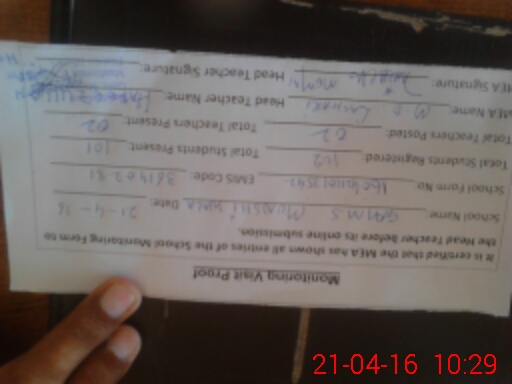 Monitoring Visit Proof
It is certified that the MEA has shown all entries of the School Monitoring Form to
the Head Teacher before its online submission.
School Name: GMMS Date: 21-4-16
School Form No: EMIS Code:
Total Students Registered: 102 Total Students Present: 101
Total Teachers Posted: 02 Total Teachers Present: 02
MEA Name: Head Teacher Name:
MEA Signature: Head Teacher Signature:
21-04-16 10:29